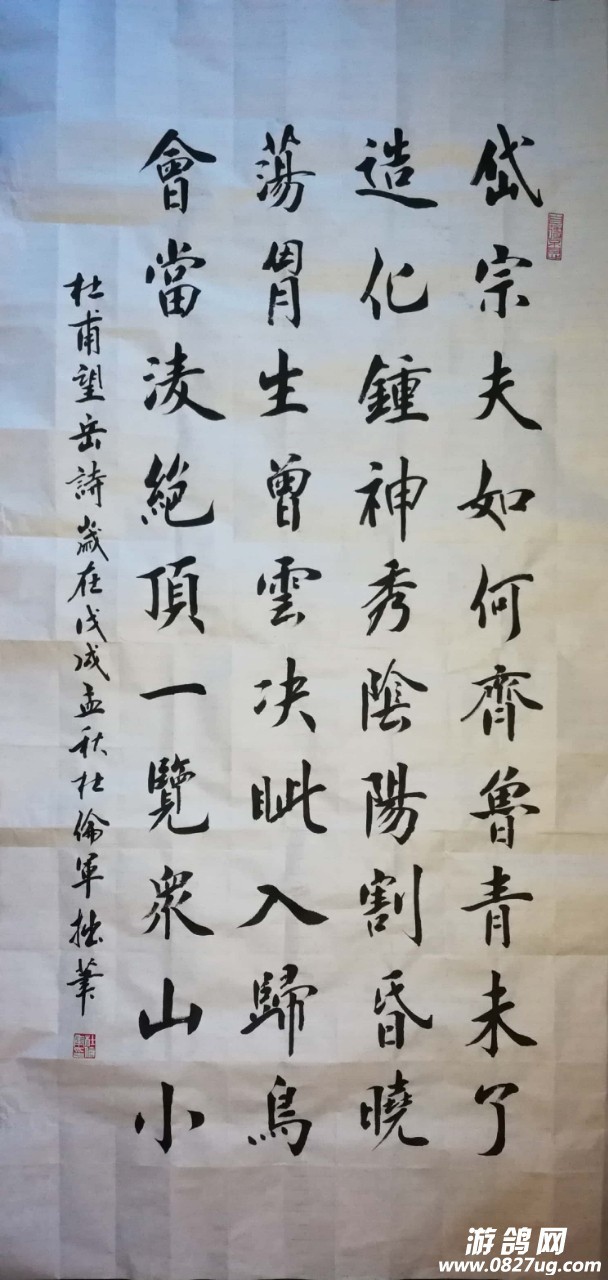 岱宗夫如何齊魯青未了
造化鍾神秀陰陽割昏曉
蕩胷生曾雲決眦入歸鳥
會當凌絕頂一覽衆山小
杜甫望岳詩歲在戊戌孟秋杜倫軍拙筆
游鸽网
www.0827ug.com